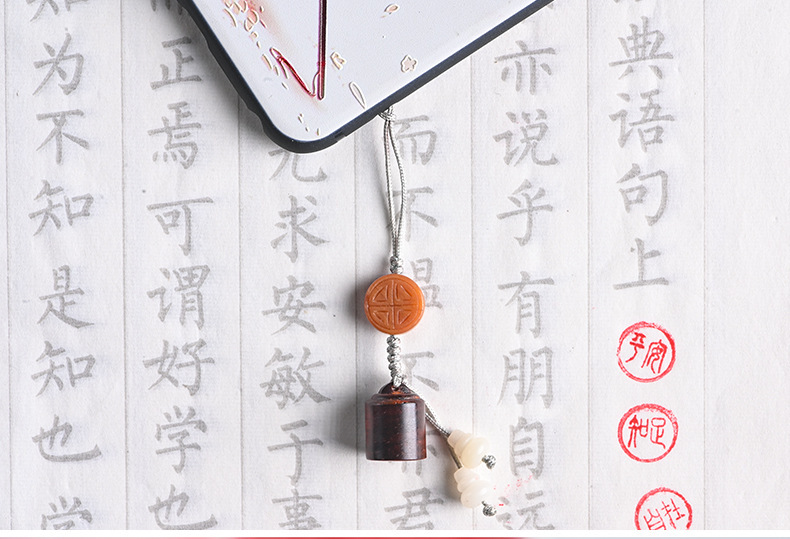 典语句上
平安
知足
亦说乎有朋自远
而不愠不君
求安敏于事
正焉可谓好学也
为不知是知也